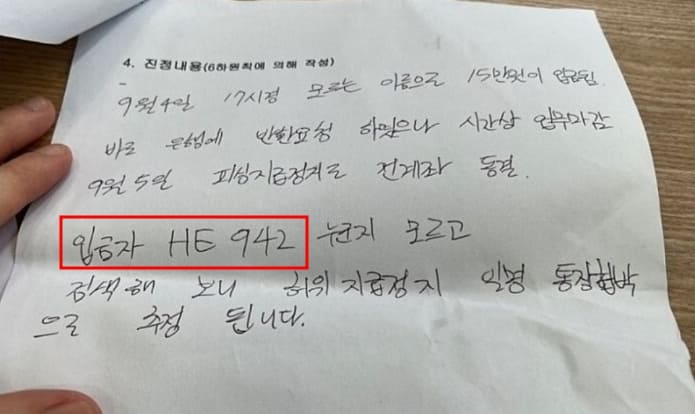 4. 진정내용(6하원칙에 의해 작성)
9월4일 17시경 모르는 이름으로 15만원이 입금됨.
바로 은행에 반환요청 하였으나 시간상 업무마감
9월 5일 피싱지급정지로 전계좌 동결.
입금자 HE 942 누군지 모르고
검색해 보니 허위 지급정지 일명 통장협박
으로 추정 됩니다.